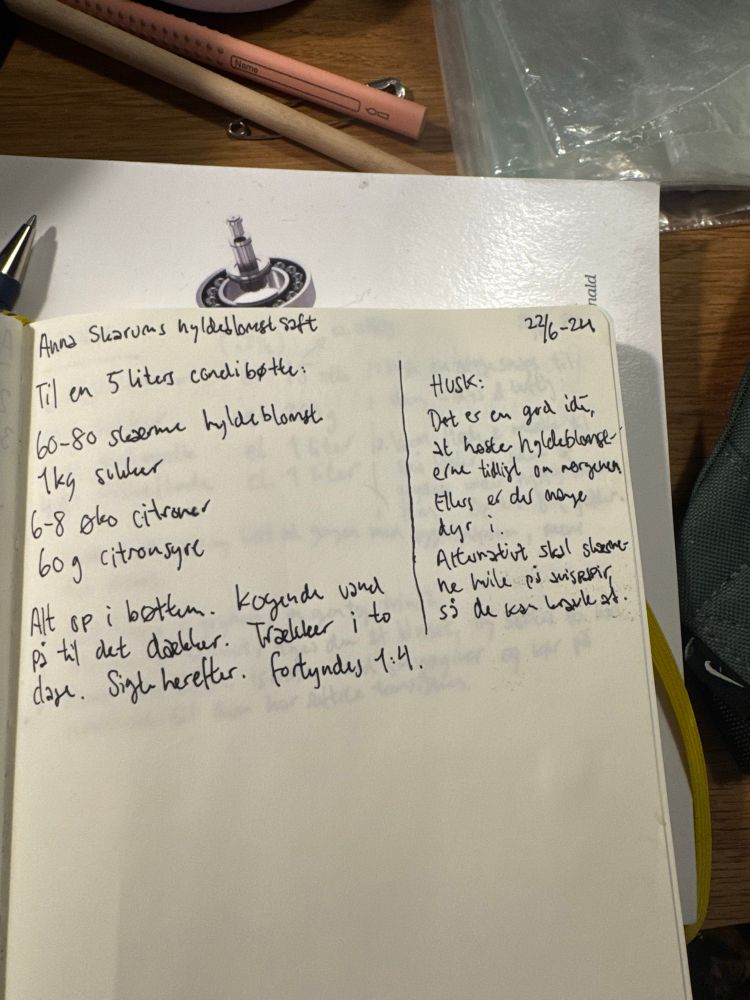 Name
nald
Anna Skarums hyldeblomst saft
22/6-24
Til en 5 liters candibøtte:
60-80 skærme hyldeblomst
1kg sukker
6-8 øko citroner
60g citronsyre
Alt op i bøtten. Kogende vand
på til det dækker. Trækker i to
dage. Sigte herefter. Fortyndes 1:4.
HUSK:
Det er en god idé,
at høste hyldeblomst-
erne tidligt om morgenen
Ellers er der mange
dyr i.
Alternativt skal skærme-
ne hvile på avispapir,
så de kan kravle at.